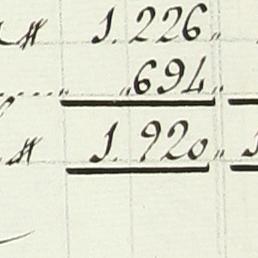 1.226 „
„ 694 „
1.920 „